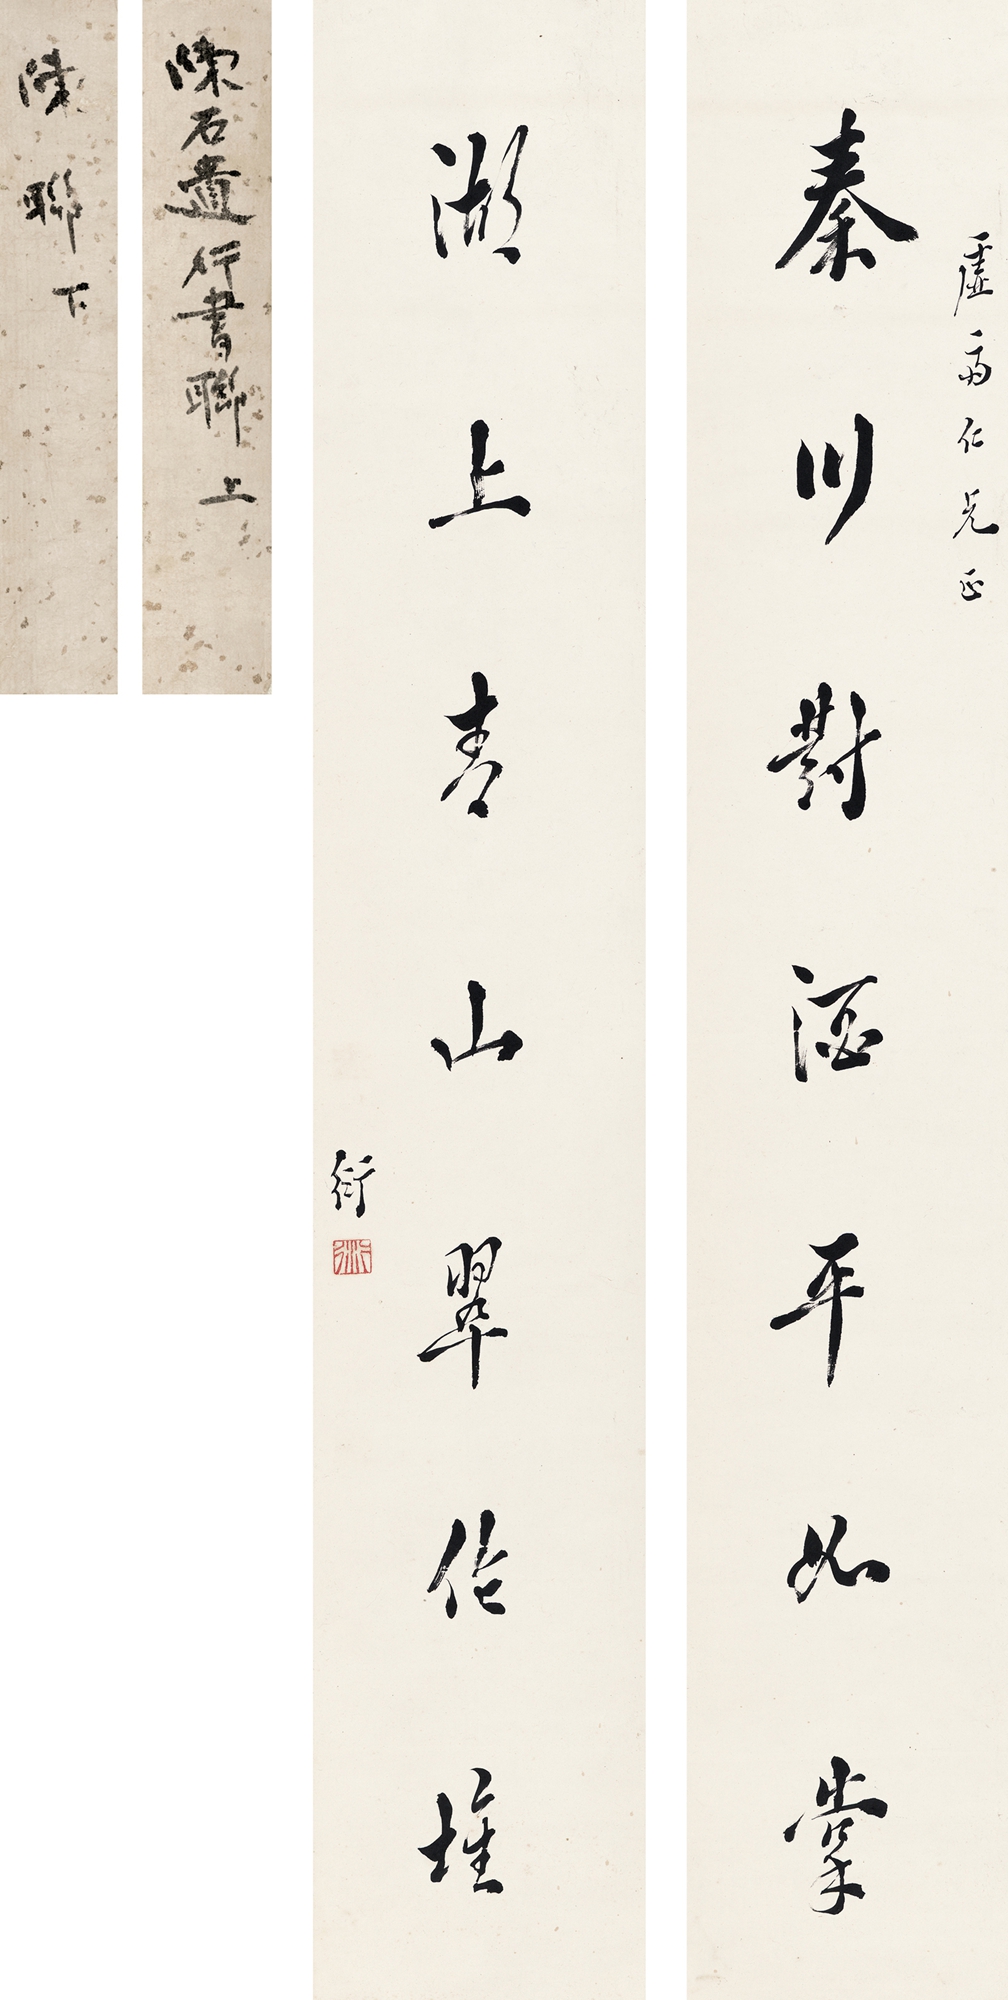 虛齋仁兄正
秦川對酒平如掌
湖上青山翠作堆
衍
陳石遺行書聯 上
陳聯 下